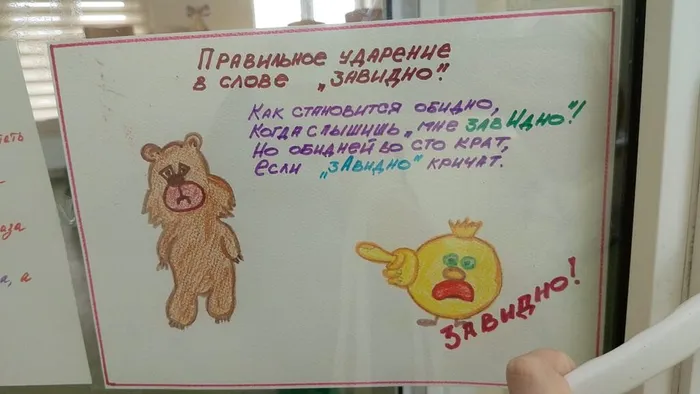 Правильное ударение
в слове „завидно".
Как становится обидно,
Когда слышишь „мне завИдно"!
Но обидней во сто крат,
Если „зАвидно" кричат.
Завидно!
тать
аза
а, а